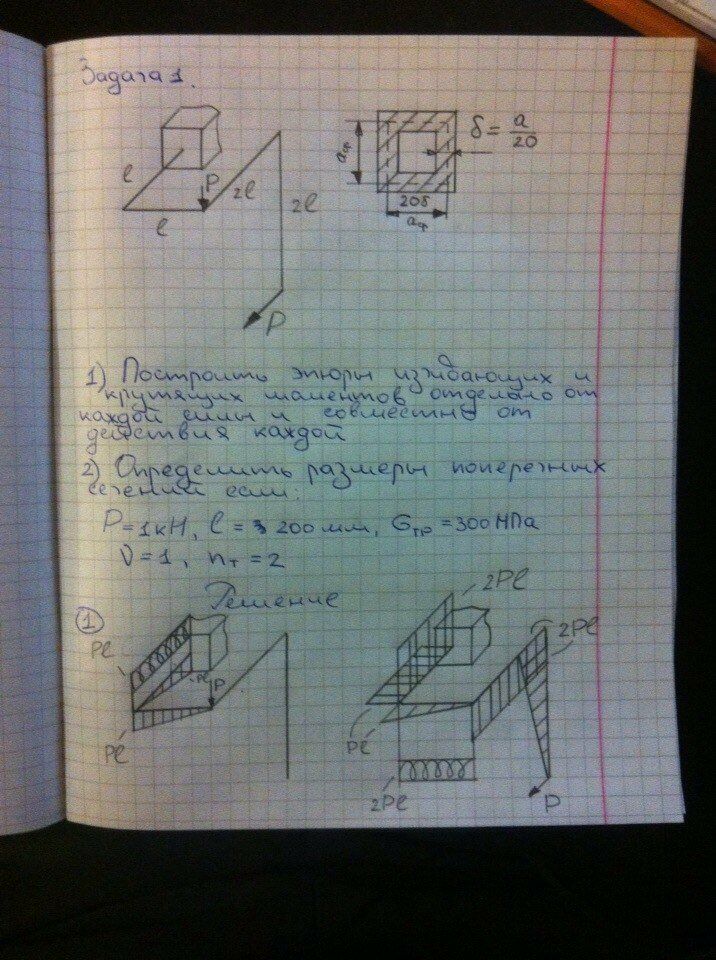 Задача 1.
l
P
2l
2l
l
P
δ = a/20
aср
20δ
aср
1) Построить эпюры изгибающих и
крутящих моментов отдельно от
каждой силы и совместно от
действия каждой
2) Определить размеры поперечных
сечений если:
P=1кН, l = 200мм, Gтр =300МПа
ν=1, nт =2
Решение
1
Pl
Pl
P
Pl
2Pl
2Pl
Pl
2Pl
P